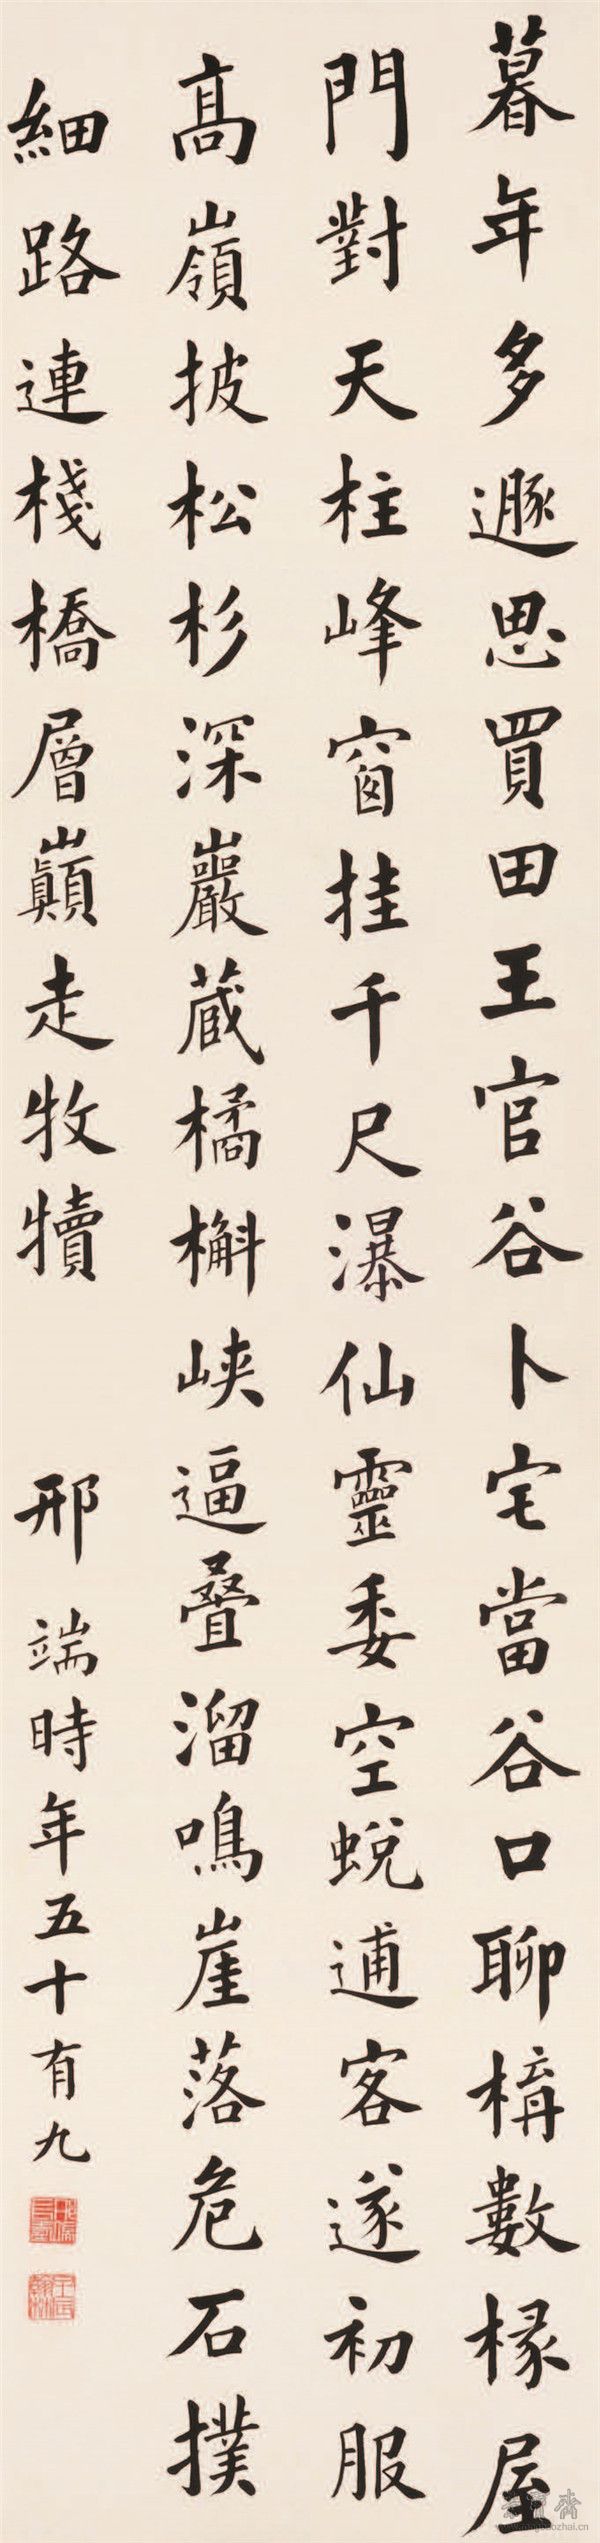 暮年多遯思買田王官谷卜宅當谷口聊構數椽屋
門對天柱峰窗挂千尺瀑仙靈委空蛻逋客遂初服
高嶺披松杉深巖蔵橘槲峽逼叠溜鳴崖落危石撲
細路連棧橋層巔走牧犢
邢端時年五十有九